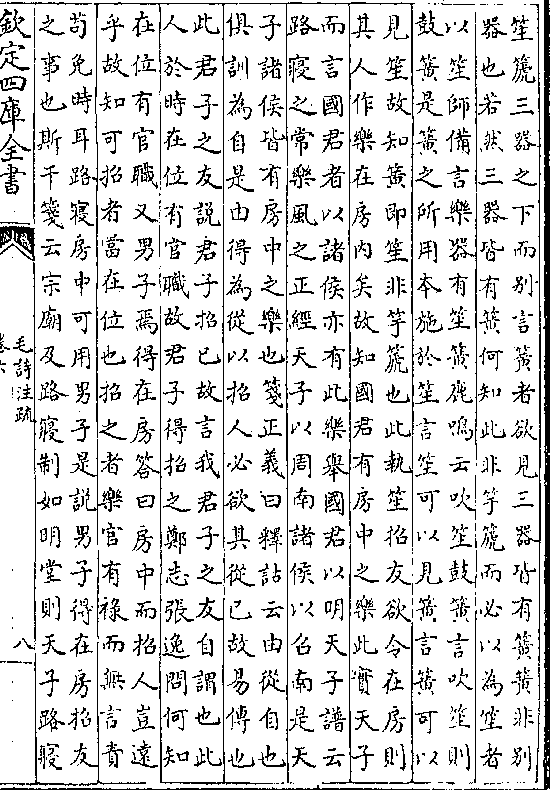 笙箎三器之下而别言簧者欲見三器皆有簧簧非别
器也若然三器皆有簧何知此非竽箎而必以為笙者
以笙師備言樂器有笙簧鹿鳴云吹笙鼓簧言吹笙則
鼓簧是簧之所用本施於笙言笙可以見簧言簧可以
見笙故知簧即笙非竽箎也此執笙招友欲令在房則
其人作樂在房内矣故知國君有房中之樂此實天子
而言國君者以諸侯亦有此樂舉國君以明天子譜云
路寢之常樂風之正經天子以周南諸侯以召南是天
子諸侯皆有房中之樂也箋正義曰釋詁云由從自也
俱訓為自是由得為從以招人必欲其從已故易傳也
此君子之友說君子招已故言我君子之友自謂也此
人於時在位有官職故君子得招之鄭志張逸問何知
在位有官職又男子焉得在房答曰房中而招人豈遠
乎故知可招者當在位也招之者樂官有祿而無言責
苟免時耳路寢房中可用男子是説男子得在房招友
之事也斯干箋云宗廟及路寢制如明堂則天子路寢
欽定四庫全書
毛詩注疏
卷六
八